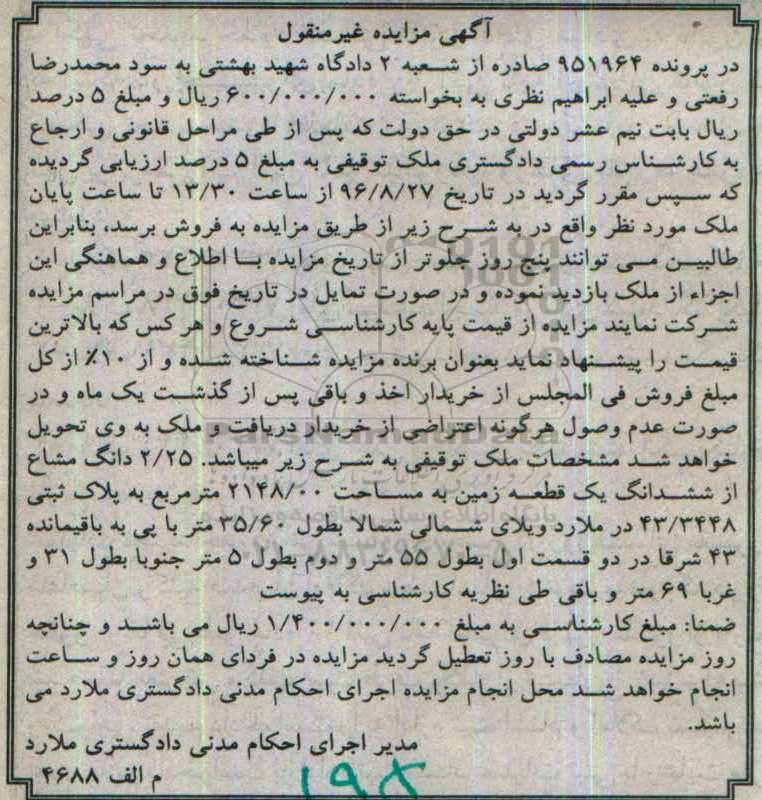 آگهی مزایده غیرمنقول
در پرونده ۹۵۱۹۶۴ صادره از شعبه ۲ دادگاه شهید بهشتی به سود محمدرضا
رفعتی و علیه ابراهیم نظری به بخواسته ۶۰۰/۰۰۰/۰۰۰ ریال و مبلغ ۵ درصد
ریال بابت نیم عشر دولتی در حق دولت که پس از طی مراحل قانونی و ارجاع
به کارشناس رسمی دادگستری ملک توقیفی به مبلغ ۵ درصد ارزیابی گردیده
که سپس مقرر گردید در تاریخ ۹۶/۸/۲۷ از ساعت ۱۳/۳۰ تا ساعت پایان
ملک مورد نظر واقع در به شرح زیر از طریق مزایده به فروش برسد، بنابراین
طالبین می توانند پنج روز جلوتر از تاریخ مزایده با اطلاع و هماهنگی این
اجراء از ملک بازدید نموده و در صورت تمایل در تاریخ فوق در مراسم مزایده
شرکت نمایند مزایده از قیمت پایه کارشناسی شروع و هر کس که بالاترین
قیمت را پیشنهاد نماید بعنوان برنده مزایده شناخته شده و از ۱۰٪ از کل
مبلغ فروش فی المجلس از خریدار اخذ و باقی پس از گذشت یک ماه و در
صورت عدم وصول هرگونه اعتراضی از خریدار دریافت و ملک به وی تحویل
خواهد شد مشخصات ملک توقیفی به شرح زیر میباشد. ۲/۲۵ دانگ مشاع
از ششدانگ یک قطعه زمین به مساحت ۲۱۴۸/۰۰ مترمربع به پلاک ثبتی
۴۳/۳۴۴۸ در ملارد ویلای شمالی شمالا بطول ۳۵/۶۰ متر با پی به باقیمانده
۴۳ شرقا در دو قسمت اول بطول ۵۵ متر و دوم بطول ۵ متر جنوبا بطول ۳۱ و
غربا ۶۹ متر و باقی طی نظریه کارشناسی به پیوست
ضمنا: مبلغ کارشناسی به مبلغ ۱/۴۰۰/۰۰۰/۰۰۰ ریال می باشد و چنانچه
روز مزایده مصادف با روز تعطیل گردید مزایده در فردای همان روز و ساعت
انجام خواهد شد محل انجام مزایده اجرای احکام مدنی دادگستری ملارد می
باشد.
مدیر اجرای احکام مدنی دادگستری ملارد
م الف ۴۶۸۸
ParsNamadData